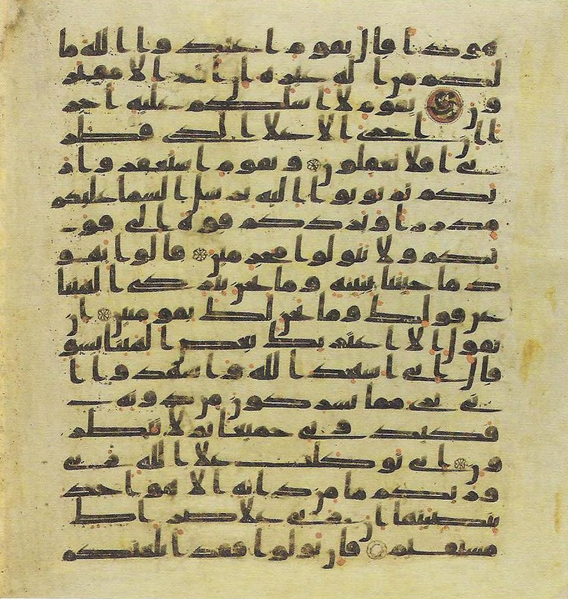 هودا قال يقوم اعبدوا الله ما
لكم من اله غيره ان انتم الا مفتر
ون يقوم لا اسلكم عليه اجر
ا ان اجري الا علي الذي فطر
ني افلا تعقلون ويقوم استغفروا ر
بكم ثم توبوا اليه يرسل السما عليكم
مدرارا ويزدكم قوة الي قو
تكم ولا تتولوا مجرمين قالوا يهو
د ما جئتنا ببينة وما نحن بتركي الهتنا
عن قولك وما نحن لك بمومنين ان
نقول الا اعتريك بعض الهتنا بسو
قال اني اشهد الله واشهدوا ا
ني بري مما تشركون من دونه
فكيدوني جميعا ثم لا تنظر
ون اني توكلت علي الله ربي
وربكم ما من دابة الا هو اخذ
بنصيتها ان ربي علي صرط
مستقيم فان تولوا فقد ابلغتكم